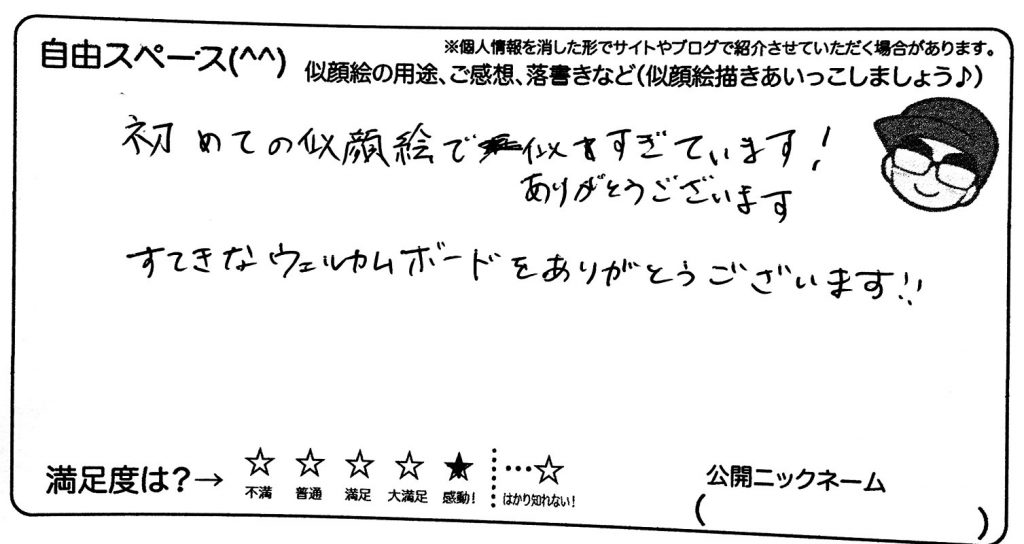 自由スペース(^^)
※個人情報を消した形でサイトやブログで紹介させていただく場合があります。
似顔絵の用途、ご感想、落書きなど(似顔絵描きあいっこしましょう♪)
初めての似顔絵で似すぎています!
ありがとうございます
すてきなウェルカムボードをありがとうございます!!
満足度は?→ ☆ ☆ ☆ ☆ ★ …☆
不満 普通 満足 大満足 感動! はかり知れない!
公開ニックネーム
( )